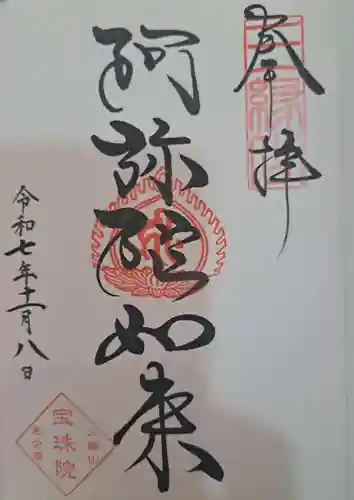 奉拝
阿弥陀如来
令和七年十一月八日
宝珠院